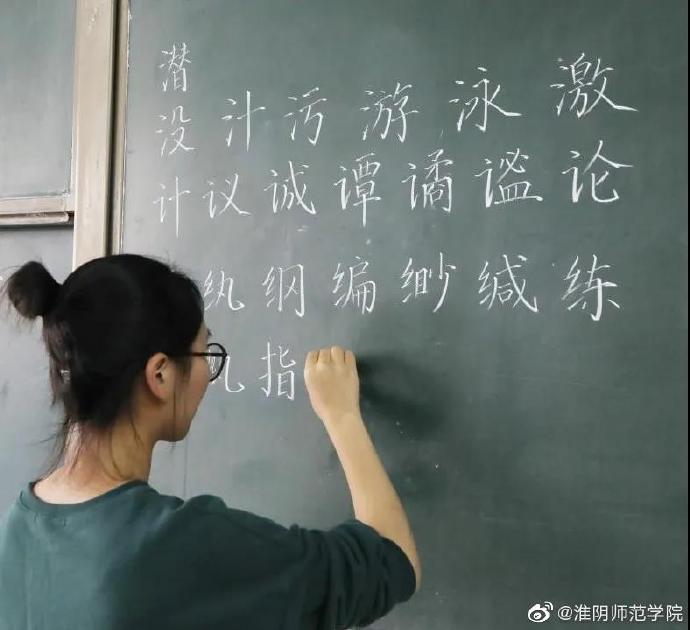 潜
没汁污游泳激
计议诚谭谲谧论
纨纲编缈缄练
指
@淮阴师范学院